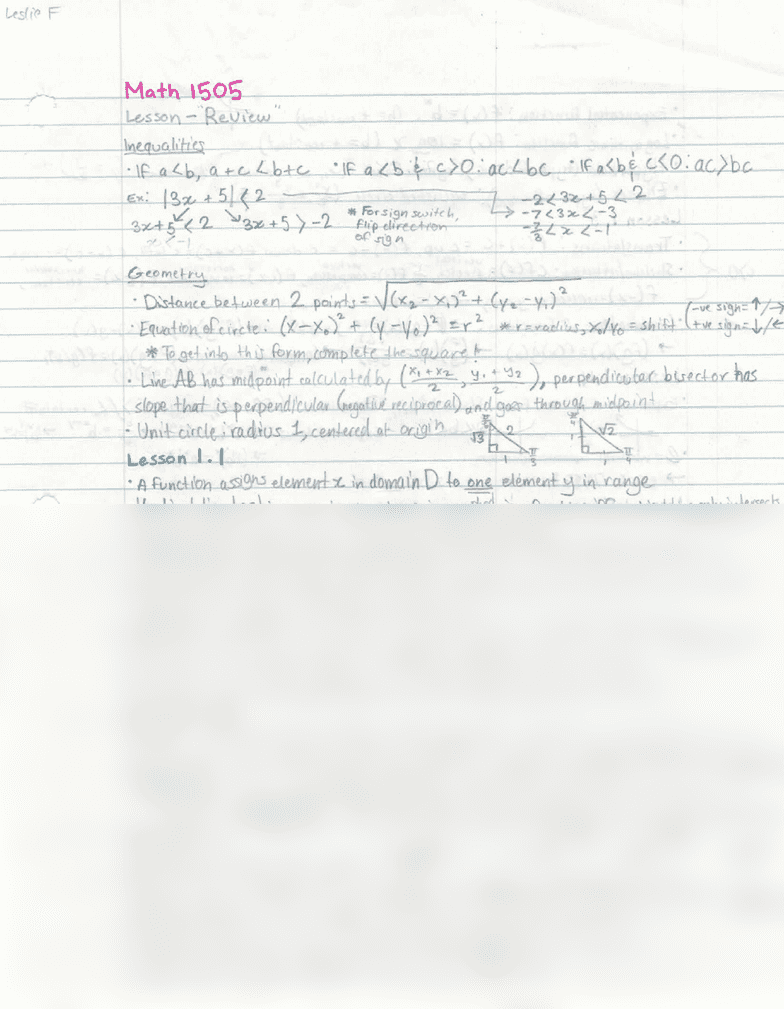 Leslie F
Math 1505
Lesson - "Review"
Inequalities
· If a<b, a+c<b+c · If a<b & c>0: ac<bc · If a<b & c<0: ac>bc
Ex: |3x + 5| < 2
3x+5 < 2 3x+5 > -2
* For sign switch, flip direction of sign
-2<3x+5<2
-7<3x<-3
-7/3<x<-1
Geometry
· Distance between 2 points = √(x₂-x₁)² + (y₂-y₁)²
· Equation of circle: (x-x₀)² + (y-y₀)² = r² * r=radius, x₀/y₀ = shift (-ve sign=↑/→
(+ve sign=↓/←
* To get into this form, complete the square!
· Line AB has midpoint calculated by (x₁+x₂/2, y₁+y₂/2), perpendicular bisector has
slope that is perpendicular (negative reciprocal) and goes through midpoint
· Unit circle: radius 1, centered at origin
√3 2 1 π/3
1 √2 1 π/4
Lesson 1.1
· A function assigns element x in domain D to one element y in range